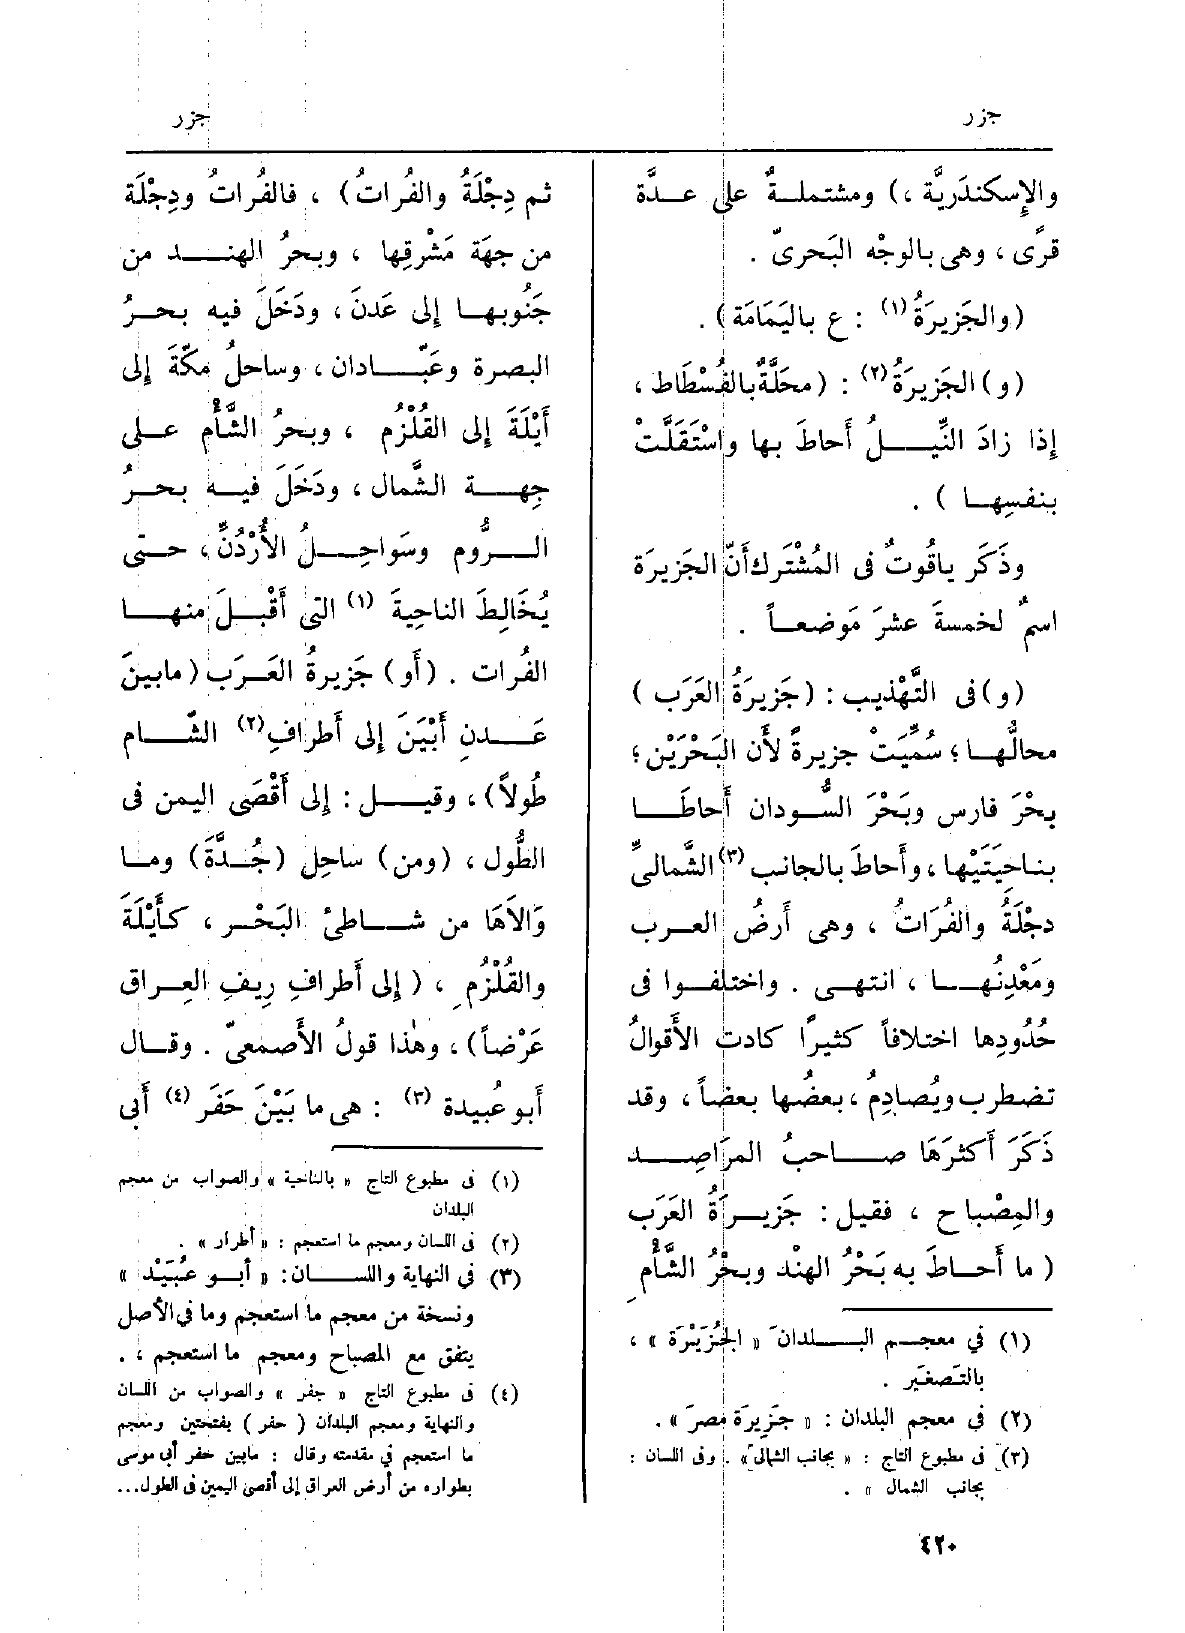 جزر
جزر
والإِسكندَرِيَّة ،) ومشتملةٌ على عدَّة
قرًى ، وهى بالوجْه البَحرىّ .
(والجَزيرَةُ (١) : ع باليَمَامَة) .
(و) الجَزيرَةُ (٢) : (محَلَّةٌ بالفُسْطاط ،
إذا زادَ النِّيلُ أَحاطَ بها واسْتَقَلَّتْ
بنفسِها ) .
وذَكَر ياقُوتٌ فى المُشْتَرك أَنّ الجَزيرَة
اسمٌ لخمسةَ عشرَ مَوضعاً .
(و) فى التَّهْذِيب : (جَزِيرَةُ العَرَب )
محالُّها ؛ سُمِّيَتْ جزيرةً لأَن البَحْرَيْن ؛
بحْرَ فارس وبَحْرَ السُّودان أَحاطَا
بناحِيَتَيْها ، وأَحاطَ بالجانب (٣) الشَّمالىِّ
دجْلَةُ والفُرَاتُ ، وهى أَرضُ العرب
ومَعْدِنُهَا ، انتهى . واختلفوا فى
حُدُودِها اختلافاً كثيرًا كادت الأَقوالُ
تضطرب ويُصادِمُ ، بعضُها بعضاً ، وقد
ذَكَرَ أَكثرَهَا صاحبُ المرَاصِد
والمِصْباح ، فقيل : جَزِيرَةُ العَرَب
( ما أَحاطَ به بَحْرُ الهنْد وبحْرُ الشَّأْمِ
(١) في معجم البلدان « الجُزَيْرَة » ،
بالتَصغَير .
(٢) في معجم البلدان : « جَزِيرَة مصرَ » .
(٣) فى مطبوع التاج : « بجانب الشمالى » . وفى اللسان :
بجانب الشمال » .
ثم دِجْلَةُ والفُراتُ) ، فالفُراتُ ودِجْلَة
من جهَة مَشْرقِها ، وبحرُ الهند من
جَنُوبها إلى عَدنَ ، ودَخَلَ فيه بحرُ
البصرة وعَبَّادان ، وساحلُ مكّةَ إلى
أَيْلَةَ إلى القُلْزُم ، وبحرُ الشَّأْم على
جِهة الشَّمال ، ودَخَلَ فيه بحرُ
الرُّوم وسَواحِلُ الأُرْدُنِّ ، حتى
يُخَالِطَ الناحِيةَ (١) التى أَقْبلَ منها
الفُرات . (أَو) جَزيرةُ العَرَب (مابينَ
عَدنِ أَبْيَنَ إلى أَطرافِ (٢) الشَّام
طُولاً) ، وقيل : إلى أَقْصَى اليمن فى
الطُّول ، (ومن) ساحِل (جُدَّةَ) وما
وَالاَهَا من شاطئ البَحْر ، كأَيْلَةَ
والقُلْزُمِ ، ( إلى أَطرافِ رِيفِ العِراق
عَرْضاً) ، وهٰذا قولُ الأَصمعىّ . وقال
أَبو عُبيدة (٣) : هى ما بَيْنَ حَفَر (٤) أَبى
(١) فى مطبوع التاج « بالناحية » والصواب من معجم
البلدان
(٢) فى اللسان ومعجم ما استعجم : « أطرار » .
(٣) في النهاية واللسان : « أبو عُبَيْد »
ونسخة من معجم ما استعجم وما في الأصل
يتفق مع المصباح ومعجم ما استعجم ، .
(٤) فى مطبوع التاج « جفر » والصواب من اللسان
والنهاية ومعجم البلدان ( حفر ) بفتحتين ومعجم
ما استعجم في مقدمته وقال : مابين حفر أبى موسى
بطواره من أرض العراق إلى أقصى اليمين فى الطول...
٤٢٠